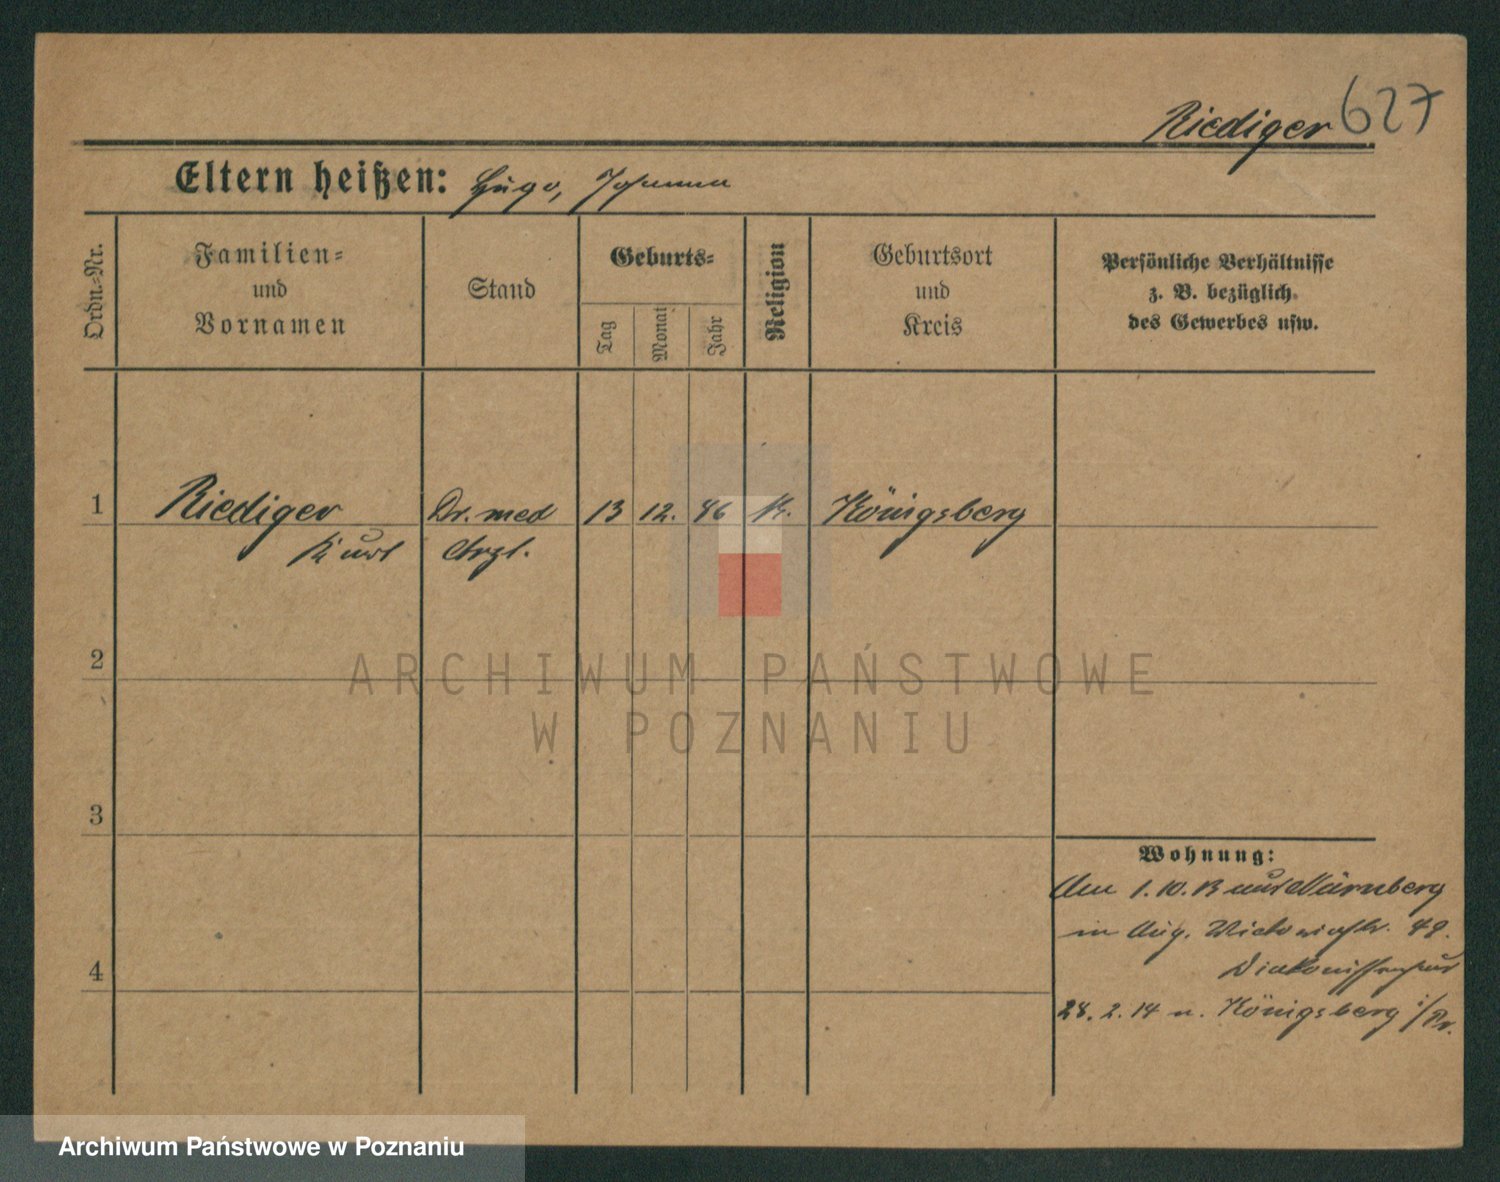 Riediger 627
Eltern heißen: Hugo, Johanna
Ordn.-Nr.
Familien-
und
Vornamen
Stand
Geburts-
Tag
Monat
Jahr
Religion
Geburtsort
und
Kreis
Persönliche Verhältnisse
z. B. bezüglich
des Gewerbes usw.
1 Riediger Dr. med 13 12. 86 K. Königsberg
Kurt Arzt.
2
ARCHIWUM PAŃSTWOWE
W POZNANIU
3
Wohnung:
Am 1. 10. 13 aus Nürnberg
in Aug. Victoriastr. 49.
4
Diakonissenhaus
28. 2. 14 n. Königsberg i/Pr.
Archiwum Państwowe w Poznaniu